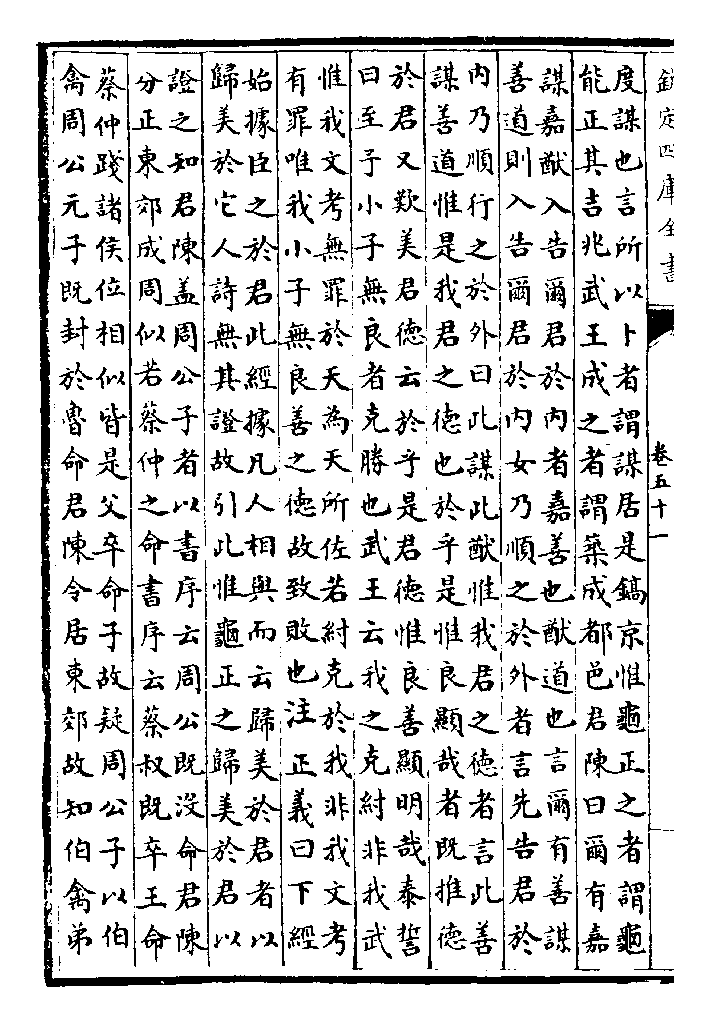 欽定四庫全書
卷五十一
度謀也言所以卜者謂謀居是鎬京惟龜正之者謂龜
能正其吉兆武王成之者謂築成都邑君陳曰爾有嘉
謀嘉猷入告爾君於內者嘉善也猷道也言爾有善謀
善道則入告爾君於內女乃順之於外者言先告君於
內乃順行之於外曰此謀此猷惟我君之德者言此善
謀善道惟是我君之德也於乎是惟良顯哉者既推德
於君又歎美君德云於乎是君德惟良善顯明哉泰誓
曰至予小子無良者克勝也武王云我之克紂非我武
惟我文考無罪於天為天所佐若紂克於我非我文考
有罪唯我小子無良善之德故致敗也注正義曰下經
始據臣之於君此經據凡人相與而云歸美於君者以
歸美於它人詩無其證故引此惟龜正之歸美於君以
證之知君陳盖周公子者以書序云周公既沒命君陳
分正東郊成周似若蔡仲之命書序云蔡叔既卒王命
蔡仲踐諸侯位相似皆是父卒命子故疑周公子以伯
禽周公元子既封於魯命君陳令居東郊故知伯禽弟